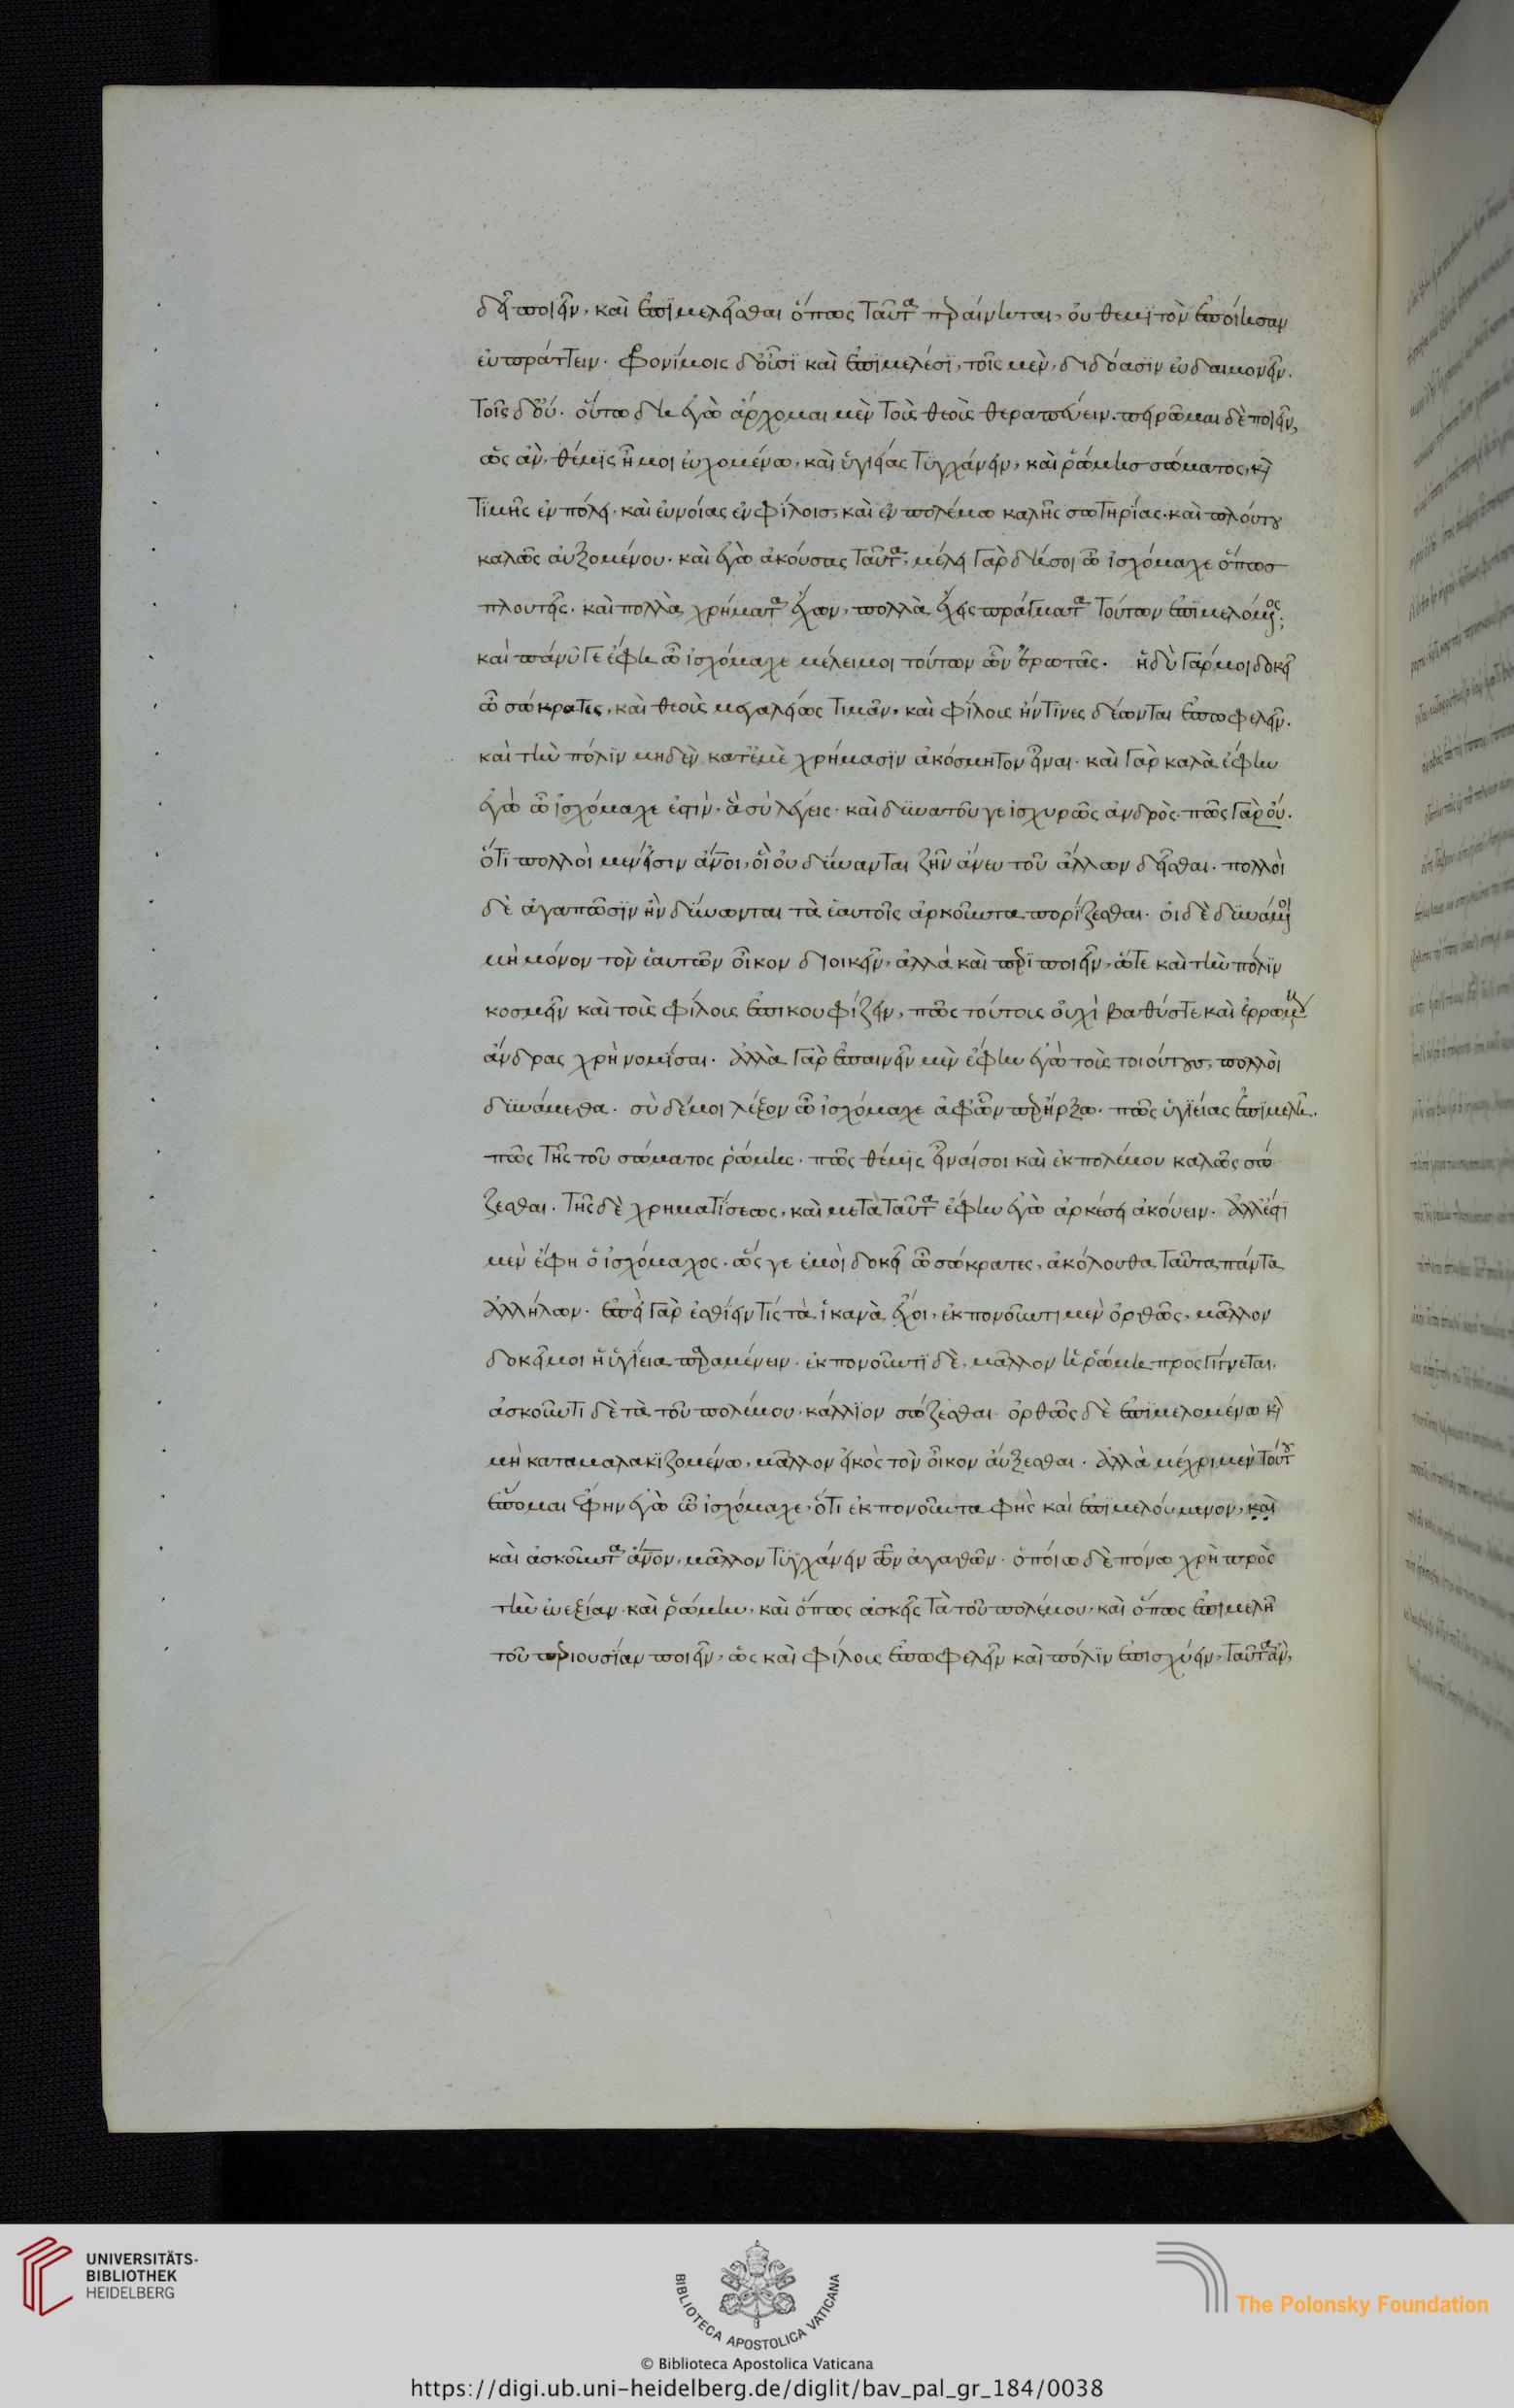 δεῖ ποιεῖν, καὶ ἐπιμελεῖσθαι ὅπως ταῦτα περαίνηται, οὐ θεμιτὸν ἐποίησαν
εὐπράττειν. φρονίμοις δ' οὖσι καὶ ἐπιμελέσι, τοῖς μὲν, διδόασιν εὐδαιμονεῖν.
τοῖς δ' οὔ. οὕτω δὴ ἐγὼ ἄρχομαι μὲν τοὺς θεοὺς θεραπεύειν. πειρῶμαι δὲ ποιεῖν,
ὡς ἂν, θέμις ᾖ μοι εὐχομένω, καὶ ὑγιείας τυγχάνειν, καὶ ῥώμης σώματος, καὶ
τιμῆς ἐν πόλει. καὶ εὐνοίας ἐν φίλοις, καὶ ἐν πολέμω καλῆς σωτηρίας. καὶ πλούτου
καλῶς αὐξομένου. καὶ ἐγὼ ἀκούσας ταῦτα, μέλει γὰρ δή σοι ὦ ἰσχόμαχε ὅπως
πλουτῇς. καὶ πολλὰ χρήματα ἔχων, πολλὰ ἔχεις πράγματα τούτων ἐπιμελόμενος;
καὶ πάνυ γε ἔφη ὦ ἰσχόμαχε μέλει μοι τούτων ὧν ἐρωτᾶς. ἡδὺ γάρ μοι δοκεῖ
ὦ σώκρατες, καὶ θεοὺς μεγαλείως τιμᾶν, καὶ φίλοις ἤν τινες δέωνται ἐπωφελεῖν.
καὶ τὴν πόλιν μηδὲν κατ' ἐμὲ χρήμασιν ἀκόσμητον εἶναι. καὶ γὰρ καλὰ ἔφην
ἐγὼ ὦ ἰσχόμαχε ἐστὶν. ἃ σὺ λέγεις. καὶ δυνατοῦ γε ἰσχυρῶς ἀνδρὸς. πῶς γὰρ οὐ.
ὅτι πολλοὶ μέν εἰσιν ἄνοι, οἳ οὐ δύνανται ζῆν ἄνευ τοῦ ἄλλων δεῖσθαι. πολλοὶ
δὲ ἀγαπῶσιν ἢν δύνωνται τὰ ἑαυτοῖς ἀρκοῦντα πορίζεσθαι. οἱ δὲ δυνάμενοι
μὴ μόνον τὸν ἑαυτῶν οἶκον διοικεῖν, ἀλλὰ καὶ περιποιεῖν, ὥστε καὶ τὴν πόλιν
κοσμεῖν καὶ τοὺς φίλους ἐπικουφίζειν, πῶς τούτους οὐχὶ βαθύς τε καὶ ἐρρωμένους
ἄνδρας χρὴ νομίσαι. ἀλλὰ γὰρ ἐπαινεῖν μὲν ἔφην ἐγὼ τοὺς τοιούτους, πολλοὶ
δυνάμεθα. σὺ δέ μοι λέξον ὦ ἰσχόμαχε ἀφ' ὧν περ ἤρξω. πῶς ὑγιείας ἐπιμελῇ.
πῶς τῆς τοῦ σώματος ῥώμης. πῶς θέμις εἶναί σοι καὶ ἐκ πολέμου καλῶς σώ
ζεσθαι. τῆς δὲ χρηματίσεως, καὶ μετὰ ταῦτα ἔφην ἐγὼ ἀρκέσει ἀκούειν. ἀλλ' ἔστι
μὲν ἔφη ὁ ἰσχόμαχος. ὥς γε ἐμοὶ δοκεῖ ὦ σώκρατες, ἀκόλουθα ταῦτα πάντα
ἀλλήλων. ἐπεὶ γὰρ ἐσθίειν τίς τὰ ἱκανὰ ἔχοι, ἐκπονοῦντι μὲν ὀρθῶς, μᾶλλον
δοκεῖ μοι ἡ ὑγίεια παραμένειν. ἐκπονοῦντι δὲ, μᾶλλον ἡ ῥώμη προσγίγνεται,
ἀσκοῦντι δὲ τὰ τοῦ πολέμου. κάλλιον σώζεσθαι. ὀρθῶς δὲ ἐπιμελομένω καὶ
μὴ καταμαλακιζομένω, μᾶλλον εἰκὸς τὸν οἶκον αὔξεσθαι. ἀλλὰ μέχρι μὲν τούτου
ἕπομαι ἔφην ἐγὼ ὦ ἰσχόμαχε, ὅτι ἐκπονοῦντα φῂς καὶ ἐπιμελούμενον, καὶ
καὶ ἀσκοῦντα ἄνον, μᾶλλον τυγχάνειν τῶν ἀγαθῶν. ὁποίω δὲ πόνω χρῇ πρὸς
τὴν εὐεξίαν. καὶ ῥώμην, καὶ ὅπως ἀσκεῖς τὰ τοῦ πολέμου. καὶ ὅπως ἐπιμελῇ
τοῦ περιουσίαν ποιεῖν, ὡς καὶ φίλους ἐπωφελεῖν καὶ πόλιν ἐπισχύειν, ταῦτα ἂν,
UNIVERSITÄTS-
BIBLIOTHEK
HEIDELBERG
BIBLIOTECA APOSTOLICA VATICANA
The Polonsky Foundation
© Biblioteca Apostolica Vaticana
https://digi.ub.uni-heidelberg.de/diglit/bav_pal_gr_184/0038